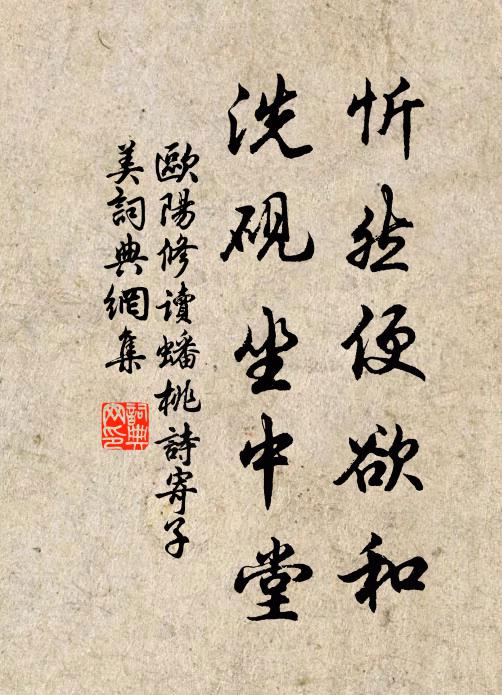 忻然便欲和
洗硯坐中堂
歐陽修讀蟠桃詩寄子
美詞典網集
詞典網印